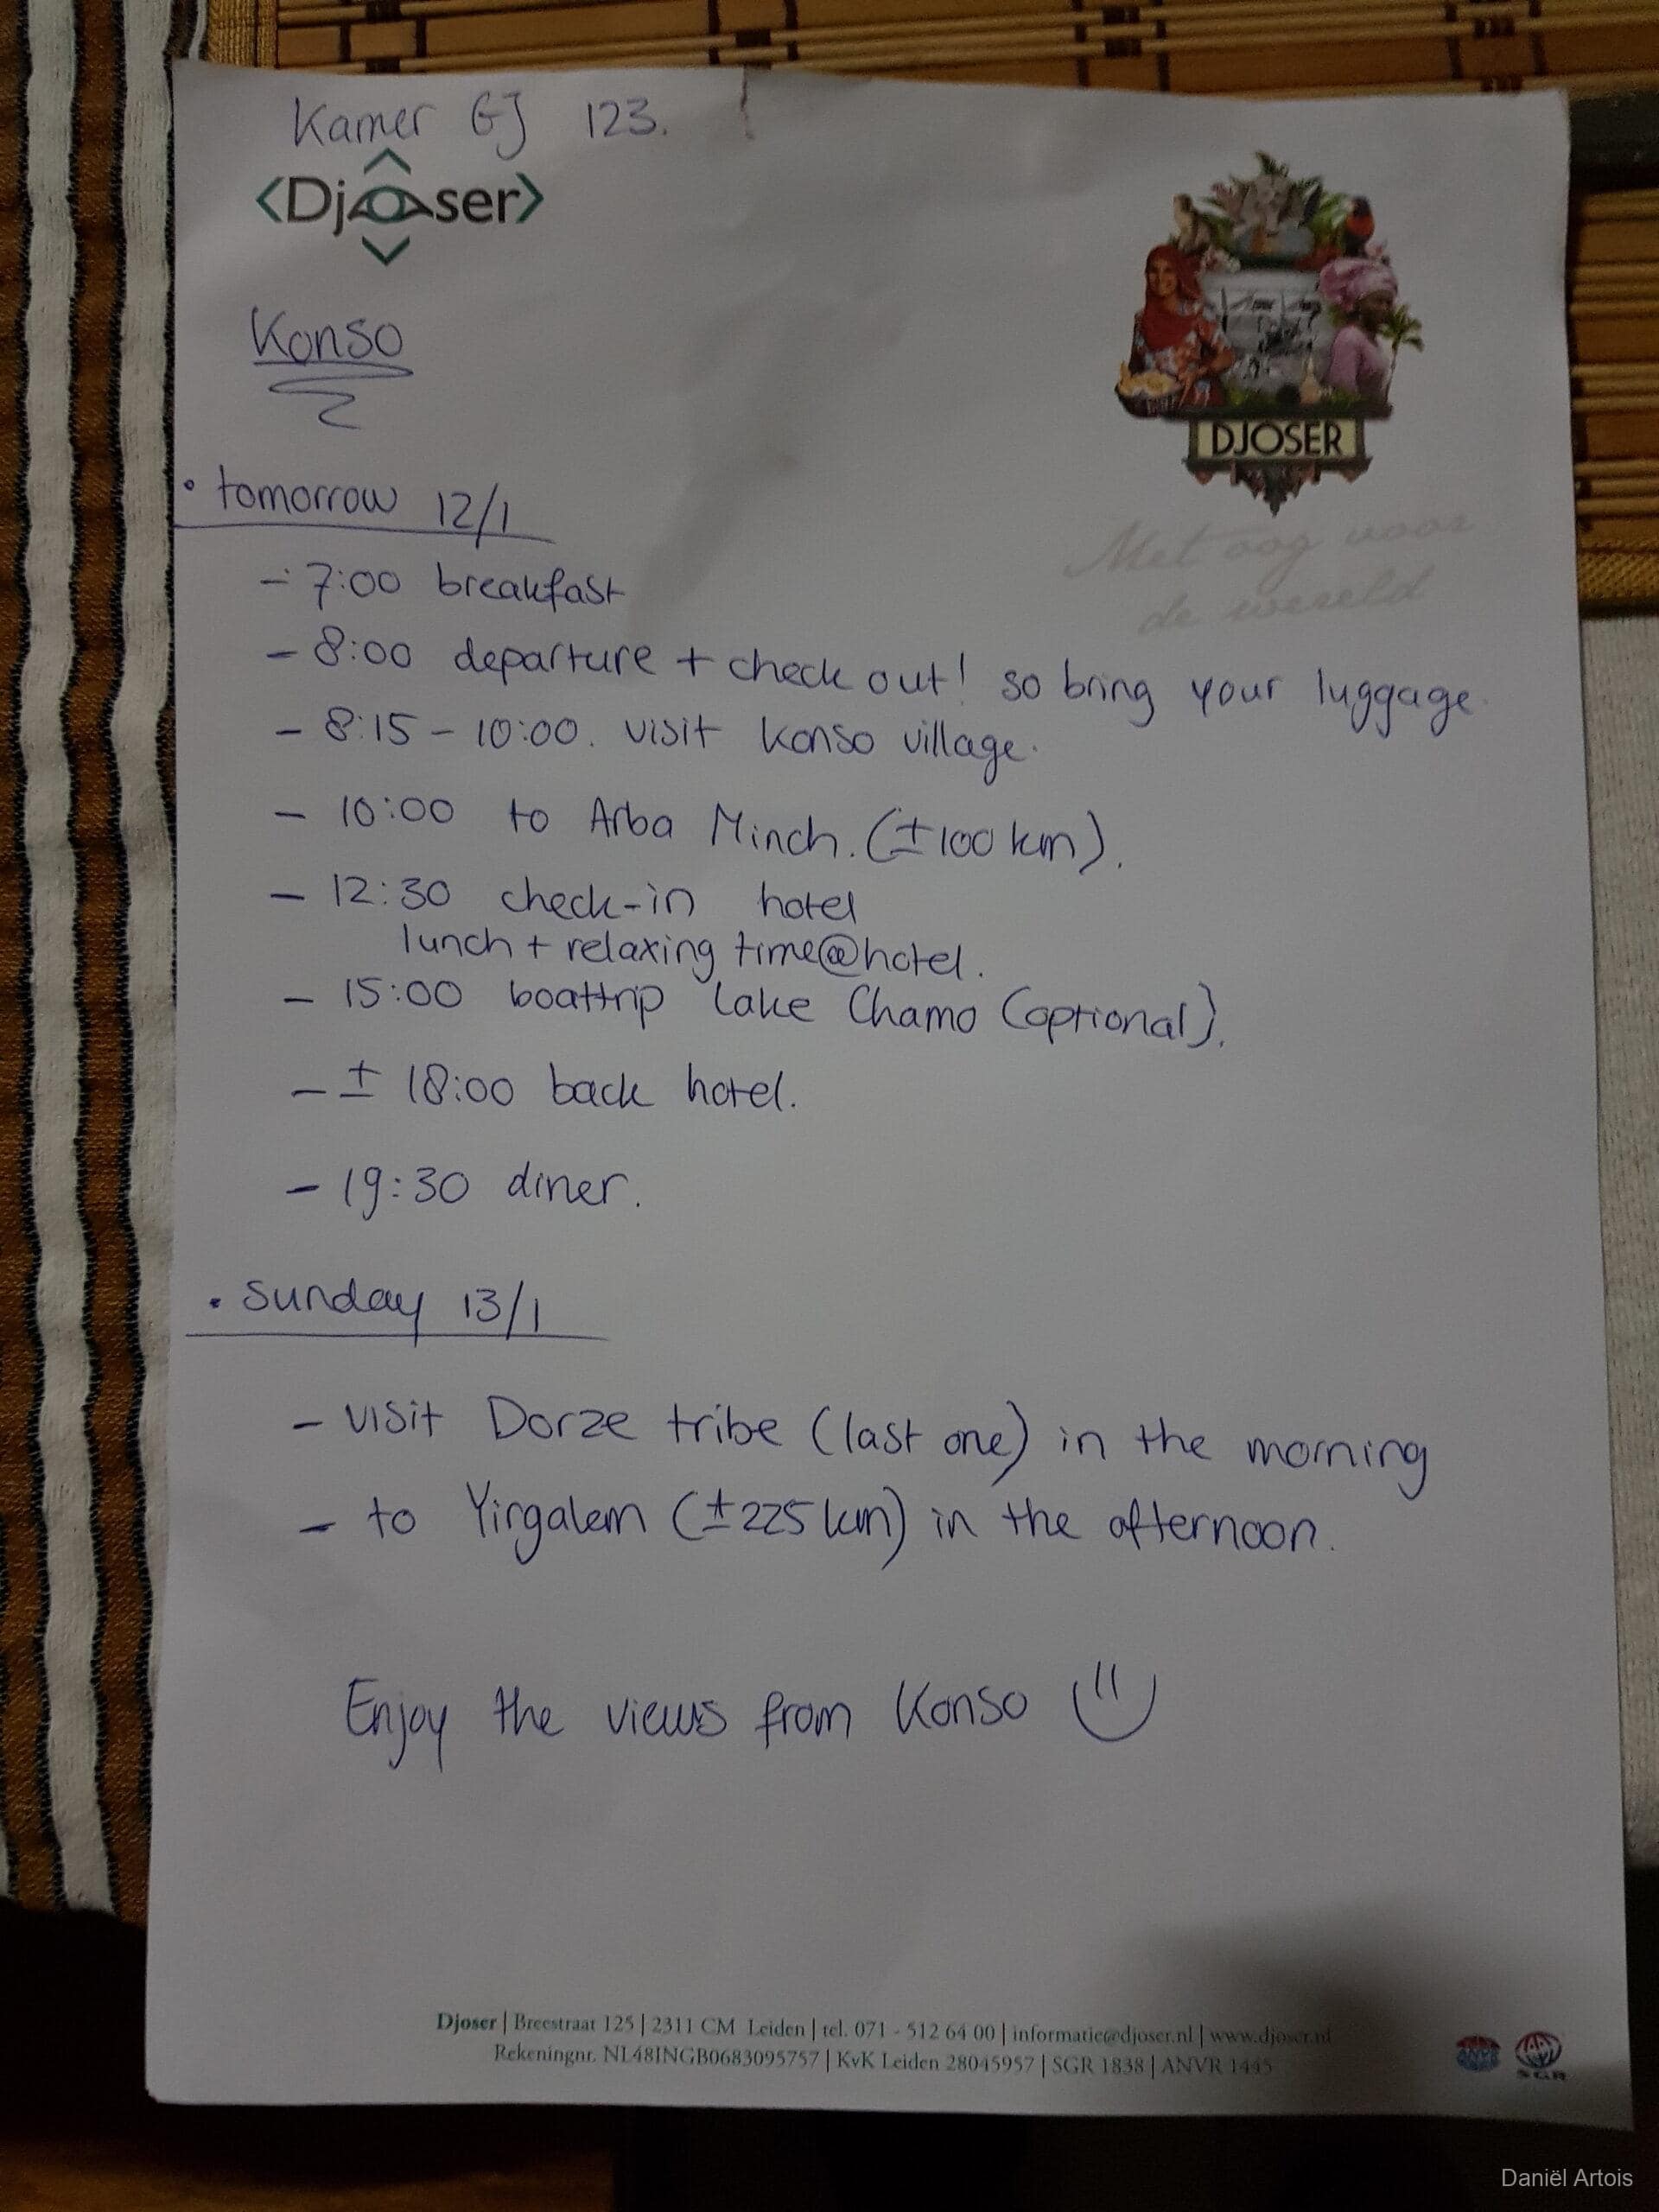 Kamer GJ 123.
<Djoser>
Konso
DJOSER
Met oog voor
de wereld
• tomorrow 12/1
- 7:00 breakfast
- 8:00 departure + check out! so bring your luggage.
- 8:15 - 10:00. visit Konso village.
- 10:00 to Arba Minch. (±100 km).
- 12:30 check-in hotel
lunch + relaxing time@hotel.
- 15:00 boattrip Lake Chamo (optional).
- ± 18:00 back hotel.
- 19:30 diner.
• Sunday 13/1
- visit Dorze tribe (last one) in the morning
- to Yirgalem (±225 km) in the afternoon.
Enjoy the views from Konso
Djoser | Breestraat 125 | 2311 CM Leiden | tel. 071 - 512 64 00 | informatie@djoser.nl | www.djoser.nl
Rekeningnr. NL48INGB0683095757 | KvK Leiden 28045957 | SGR 1838 | ANVR 1445
ANVR
SGR
Daniël Artois